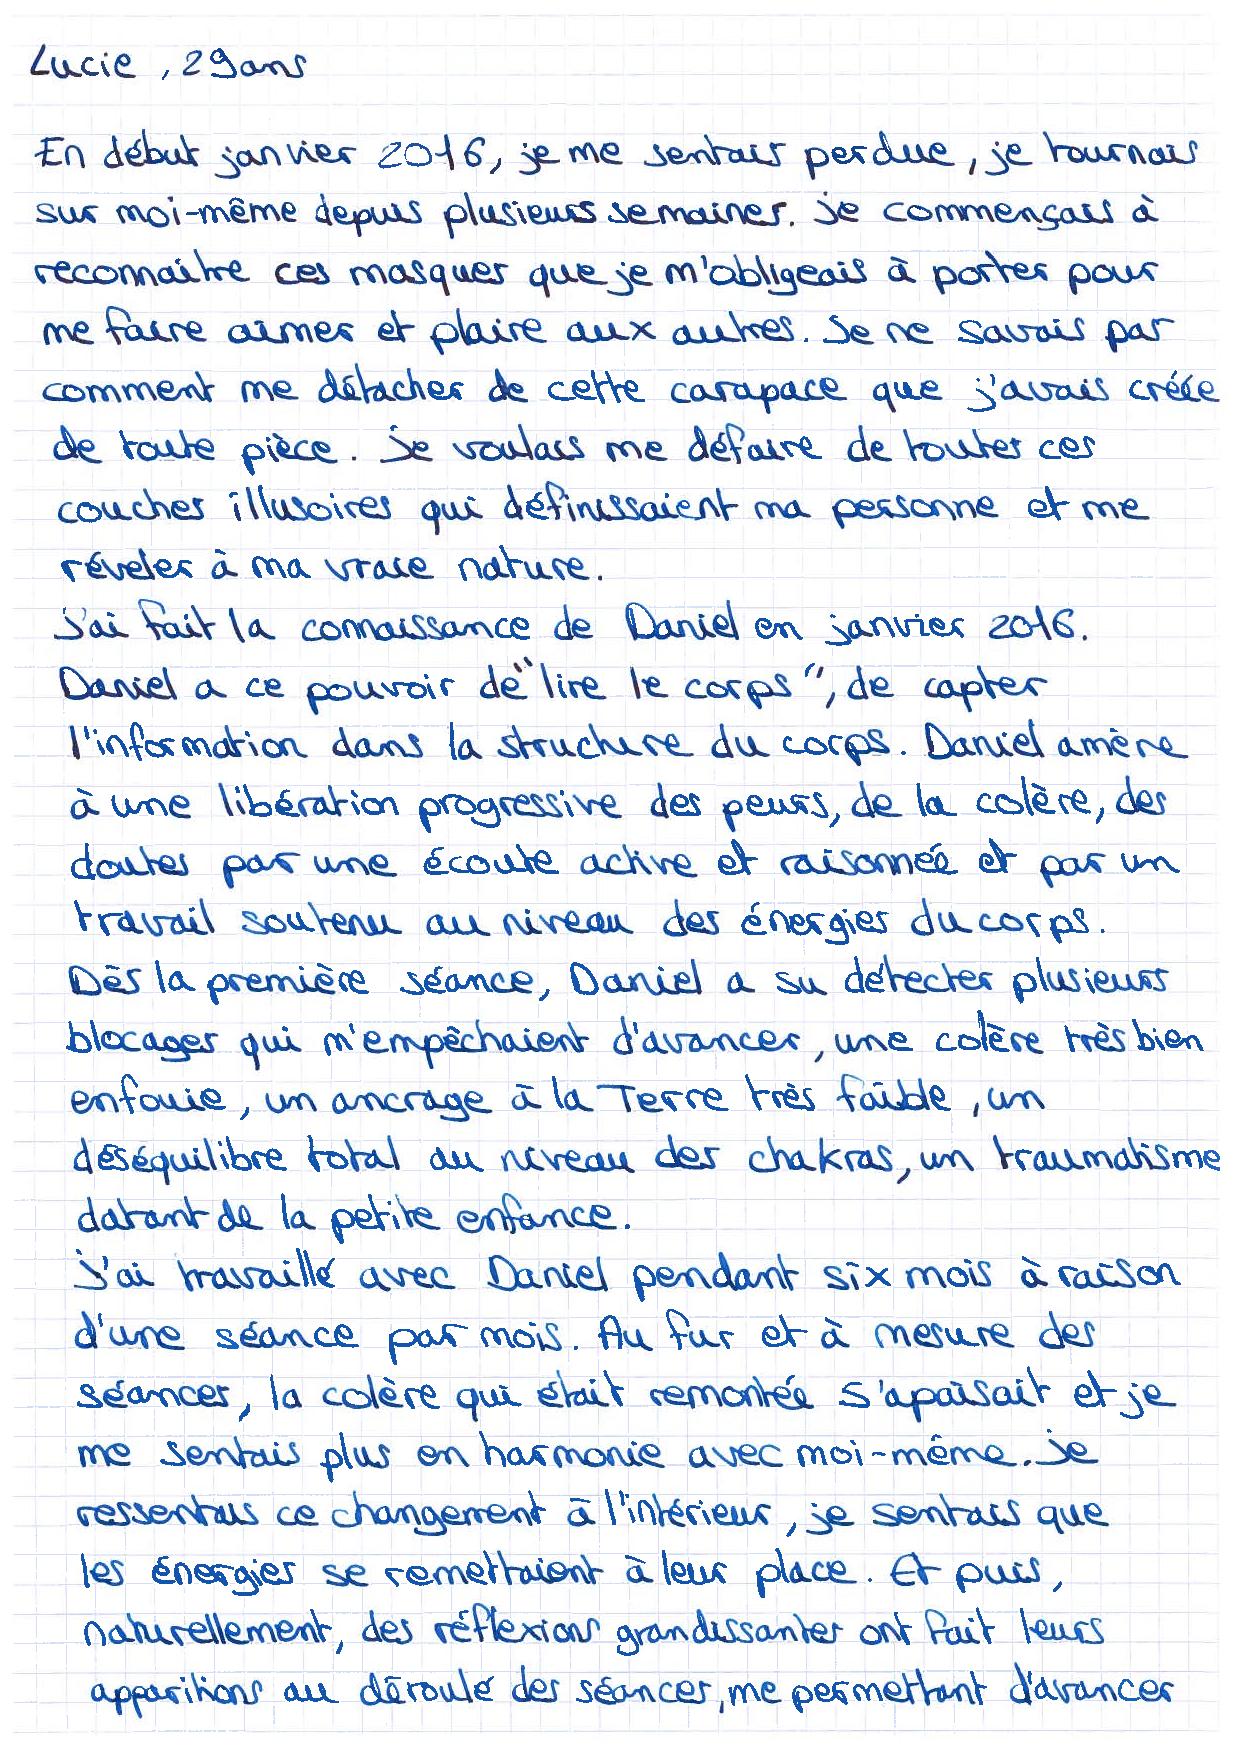 Lucie, 29 ans
En début janvier 2016, je me sentais perdue, je tournais
sur moi-même depuis plusieurs semaines. Je commençais à
reconnaître ces masques que je m'obligeais à porter pour
me faire aimer et plaire aux autres. Je ne savais pas
comment me détacher de cette carapace que j'avais créée
de toute pièce. Je voulais me défaire de toutes ces
couches illusoires qui définissaient ma personne et me
révéler à ma vraie nature.
J'ai fait la connaissance de Daniel en janvier 2016.
Daniel a ce pouvoir de "lire le corps", de capter
l'information dans la structure du corps. Daniel amène
à une libération progressive des peurs, de la colère, des
doutes par une écoute active et raisonnée et par un
travail soutenu au niveau des énergies du corps.
Dès la première séance, Daniel a su détecter plusieurs
blocages qui m'empêchaient d'avancer, une colère très bien
enfouie, un ancrage à la Terre très faible, un
déséquilibre total au niveau des chakras, un traumatisme
datant de la petite enfance.
J'ai travaillé avec Daniel pendant six mois à raison
d'une séance par mois. Au fur et à mesure des
séances, la colère qui était remontée s'apaisait et je
me sentais plus en harmonie avec moi-même. Je
ressentais ce changement à l'intérieur, je sentais que
les énergies se remettaient à leur place. Et puis,
naturellement, des réflexions grandissantes ont fait leurs
apparitions au déroulé des séances, me permettant d'avancer